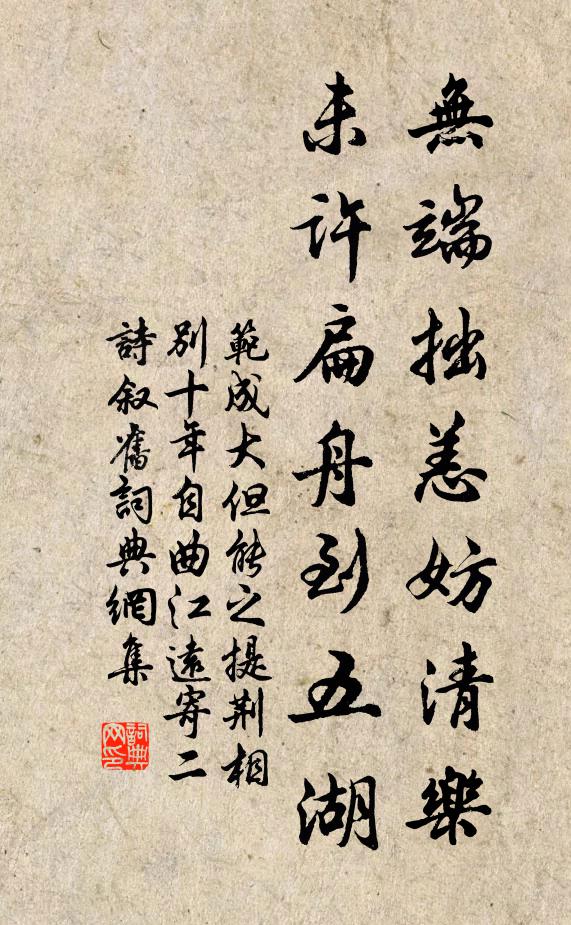 無端拙恙妨清樂
未許扁舟到五湖
範成大但能之提荆相
別十年自曲江遠寄二
詩叙舊詞典網集
詞典
网印